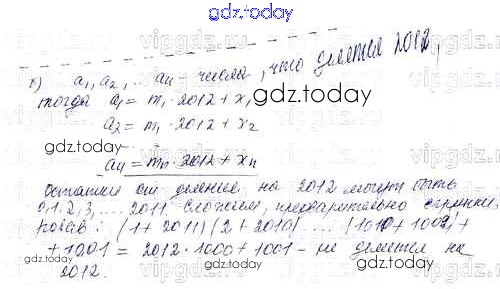 gdz.today
б) a₁, a₂, ... aₙ – числа, что делятся 2012,
тогда a₁ = m₁ · 2012 + x₁
gdz.today
a₂ = m₁ · 2012 + x₂
gdz.today
aₙ = mₙ · 2012 + xₙ
Остатки от деления на 2012 могут быть
0, 1, 2, 3, ... 2011. Сложим, предварительно
gdz.today
(1 + 2011) (2 + 2010) ... (1010 + 1002)
+ 1001 = 2012 · 1000 + 1001 – не делится на
2012.
gdz.today